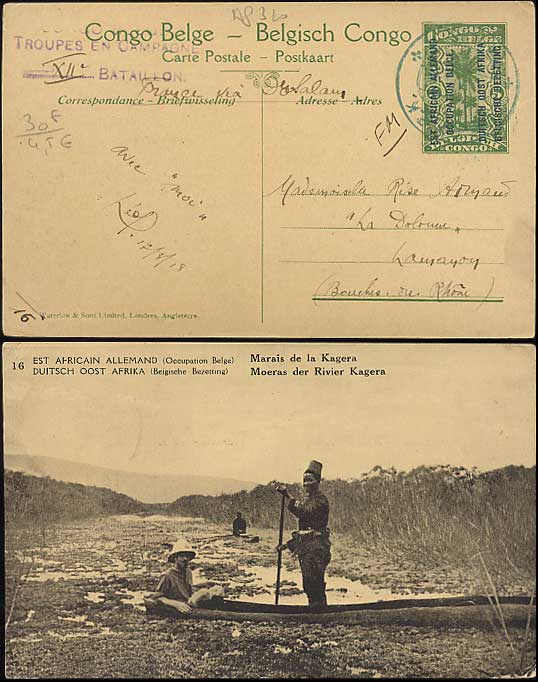 AP36
Congo Belge – Belgisch Congo
Carte Postale – Postkaart
TROUPES EN CAMPAGNE
XIIe
BATAILLON.
Correspondance - Briefwisseling
Adresse - Adres
via Dar Salam
FM
EST AFRICAIN ALLEMAND
OCCUPATION BELGE
DUITSCH OOST AFRIKA
BELGISCHE BEZETTING
CONGO
BELGE
CONGO
5
30F
45€
avec "moi"
Léo
12/8/18
Mademoiselle Rose
"La
(Bouches du Rhône)
16
Waterlow & Sons Limited, Londres, Angleterre.
16 EST AFRICAIN ALLEMAND (Occupation Belge) Marais de la Kagera
DUITSCH OOST AFRIKA (Belgische Bezetting) Moeras der Rivier Kagera